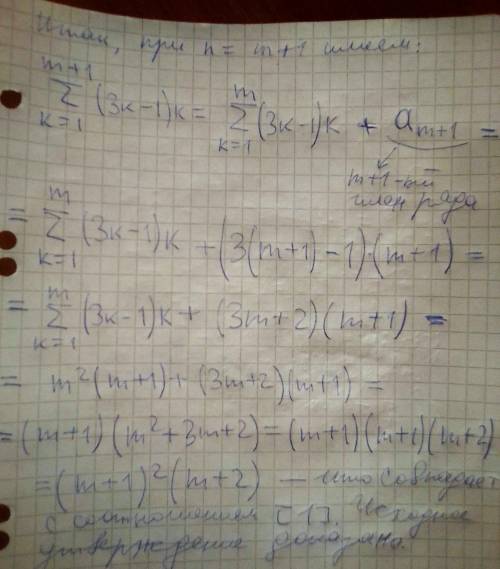 Итак, при n = m+1 имеем:
m+1 ∑ k=1 (3k-1)k = m ∑ k=1 (3k-1)k + a_{m+1} =
m+1-ый
член ряда
= m ∑ k=1 (3k-1)k + (3(m+1)-1)·(m+1) =
= m ∑ k=1 (3k-1)k + (3m+2)(m+1) =
= m²(m+1) + (3m+2)(m+1) =
= (m+1)(m²+3m+2) = (m+1)(m+1)(m+2)
= (m+1)²(m+2) — что совпадает
с соотношением [1]. Исходное
утверждение доказано.